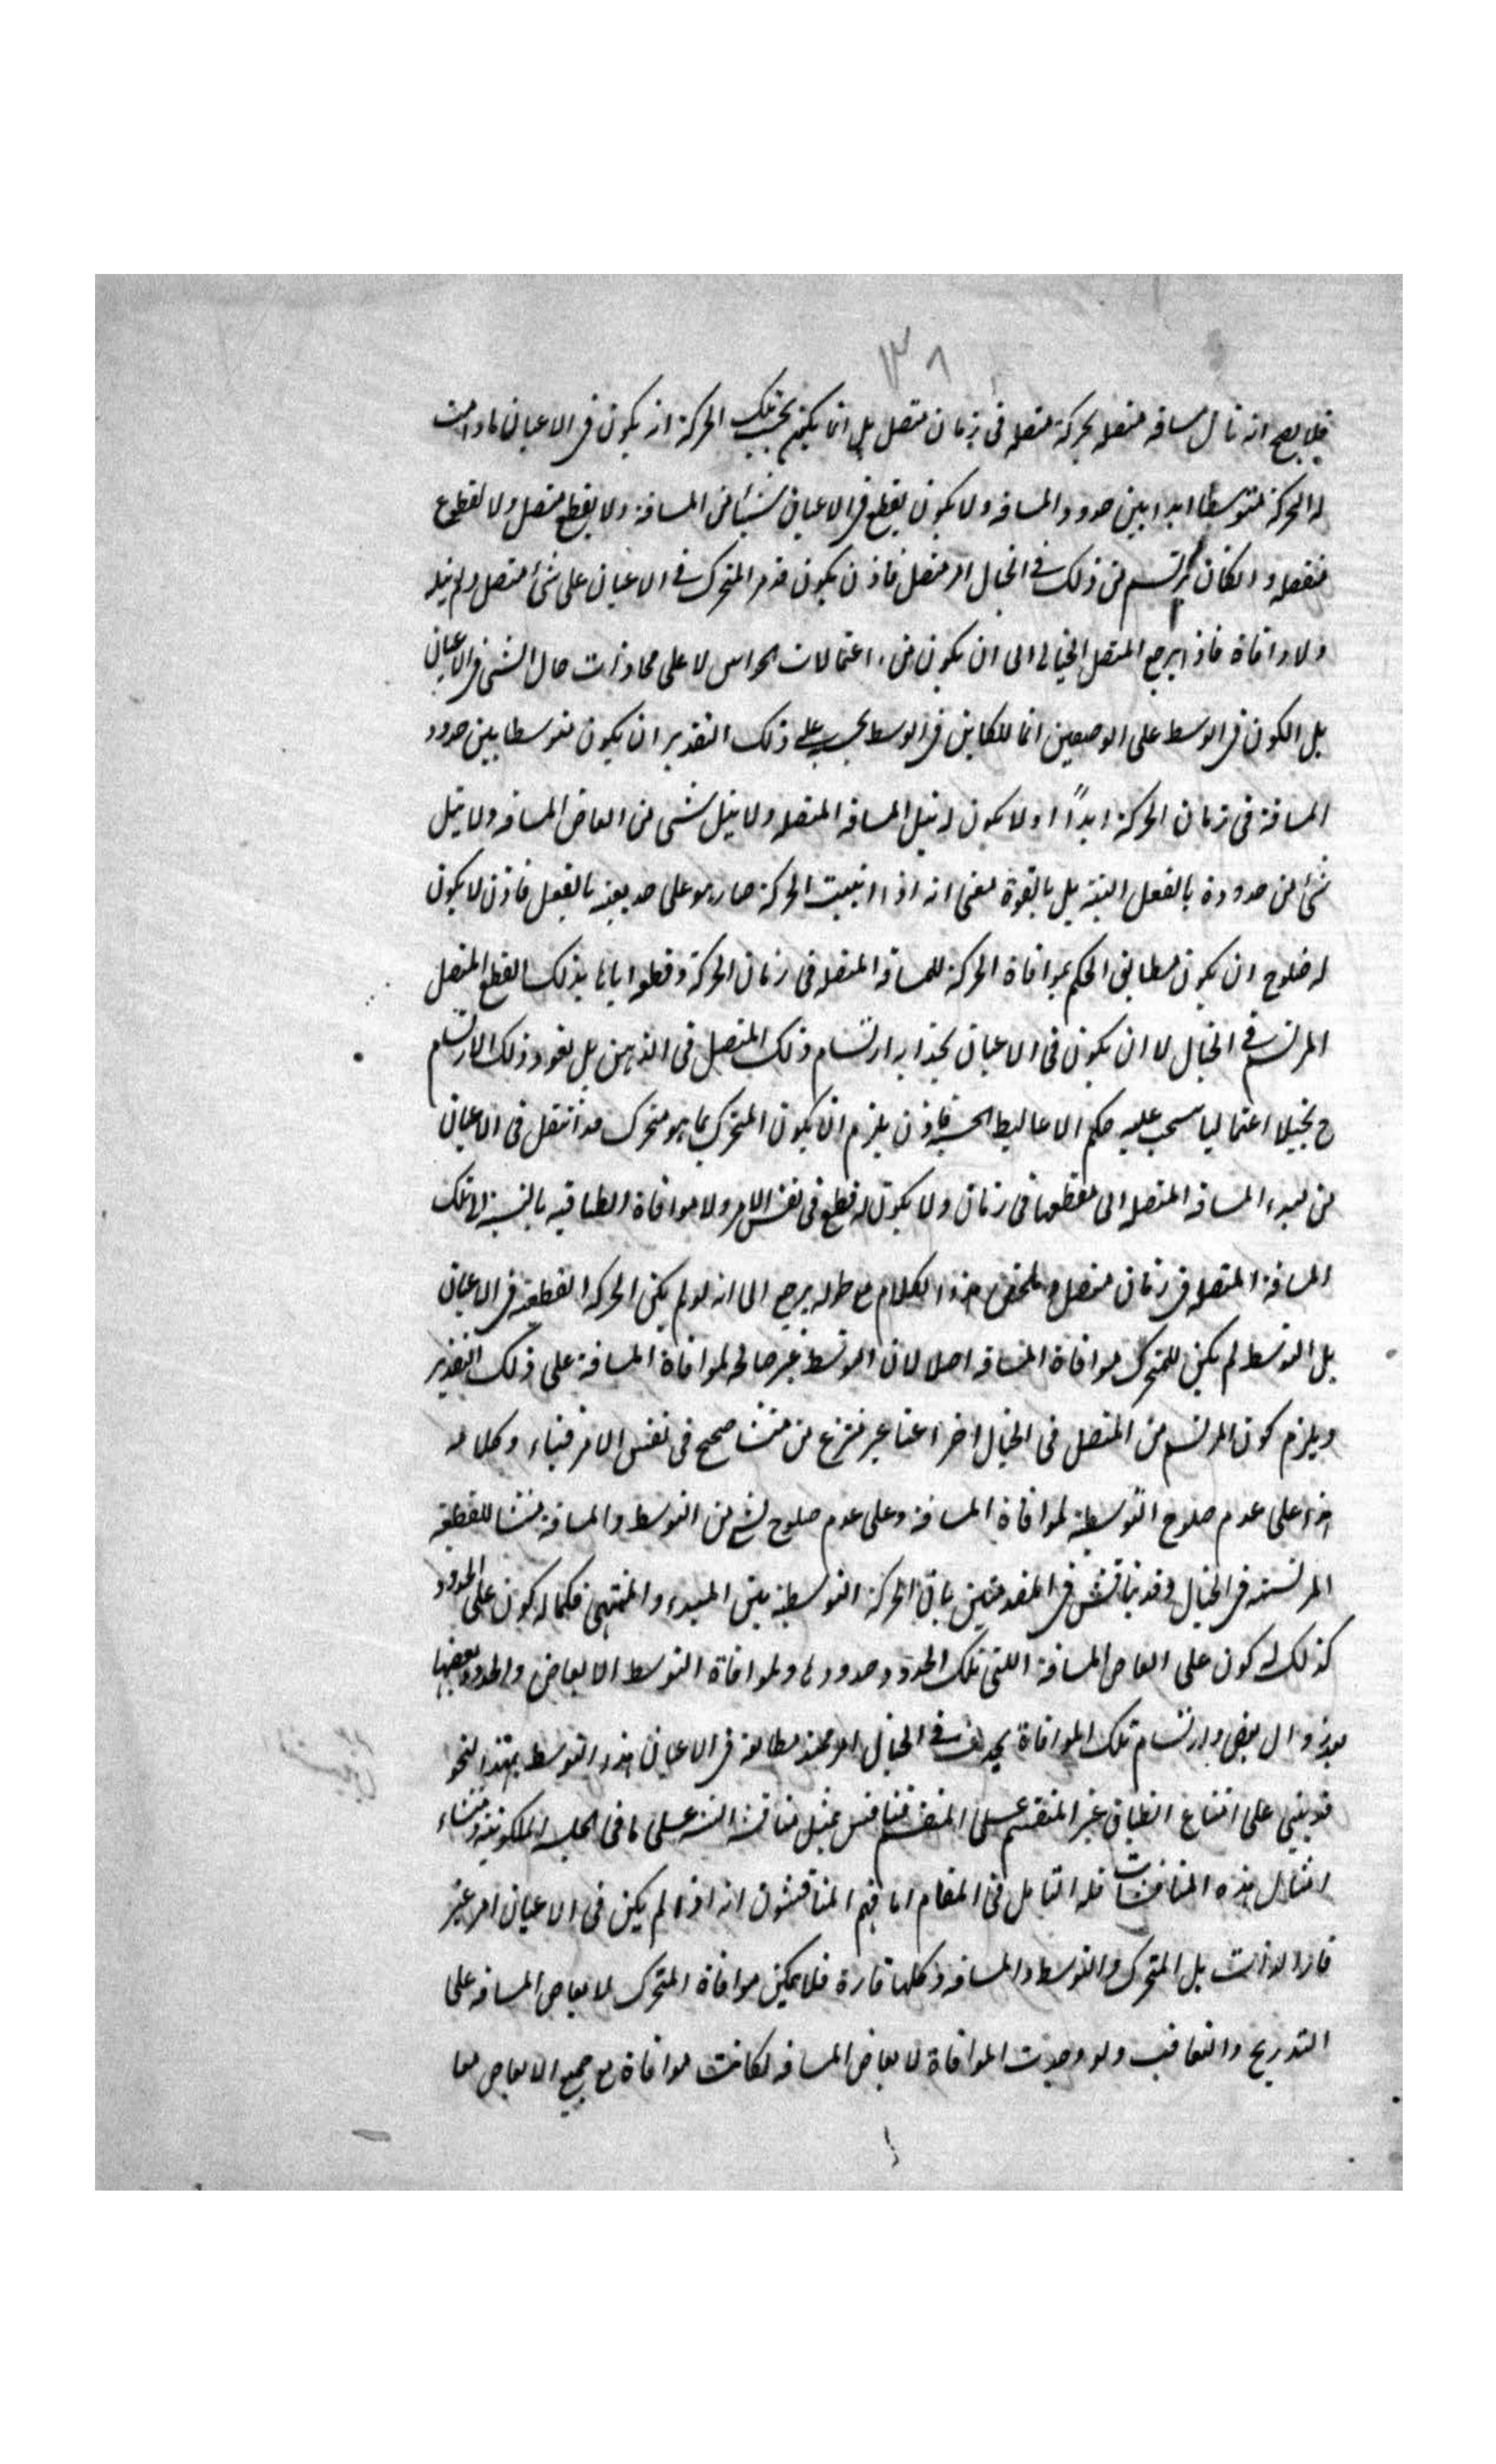 ١٣٨
فلا يصح انه نال مسافة متصلة بحركة متصلة فى زمان متصل بل انما يكتم بحسب تلك الحركة انه يكون فى الاعيان مادامت
له الحركة متوسطا ابدا بين حدود المسافة ولا يكون يقطع فى الاعيان شيئا من المسافة ولا يقطع متصل ولا لقطوع
منفصلة وانكان يرتسم من ذلك فى الخيال امر متصل فاذن يكون مرّ المتحرك فى الاعيان على شئ متصل ولم ينله
ولا وافاه فاذا يرجع المتصل الخيالى الى ان يكون من اعتمالات الحواس لا على محاذات حال الشئ فى الاعيان
بل الكون فى الوسط على الوضعين انما للكاين فى الوسط بحسبه على ذلك التقدير ان يكون متوسطا بين حدود
المسافة فى زمان الحركة ابداً اولا يكون له نيل المسافة المتصلة ولا نيل شئ من ابعاض المسافة ولا نيل
شئ من حدودة بالفعل البتة بل بالقوة بمعنى انه اذا انبتت الحركة صار هو على حد بعينه بالفعل فاذن لا يكون
له ضلوح ان يكون مطابق الحكم بموافاة الحركة للمسافة المتصلة فى زمان الحركة وقطعه اياها بذلك القطع المتصل
المرتسم فى الخيال لا ان يكون فى الاعيان بحذاء ارتسام ذلك المتصل فى الذهن بل يعود ذلك الارتسام
ح تخيلا اعتماليا ينسحب عليه حكم الاغاليط الحسية فاذن يلزم ان يكون المتحرك بما هو متحرك قد انتقل فى الاعيان
من مبدء المسافة المتصلة الى مقطعها فى زمان ولا يكون له قطع فى نفس الامر ولا موافاة انطباقية بالنسبة الى تلك
المسافة المتصلة فى زمان متصل وملخص هذا الكلام مع طوله يرجع الى انه لو لم يكن الحركة القطعية فى الاعيان
بل التوسط لم يكن للمتحرك موافاة المسافة اصلا لان التوسط غير صالح لموافاة المسافة على ذلك التقدير
ويلزم كون المرتسم من المتصل فى الخيال اختراعيا غير منتزع من منشا صحيح فى نفس الامر فبناء كلامه
هذا على عدم صلوح التوسطية لموافاة المسافة وعلى عدم صلوح شئ من التوسط والمسافة منشا للقطعية
المرتسمة فى الخيال وقد يناقش فى المقدمتين بان الحركة التوسطية بين المبدء والمنتهى فكما له كون على الحدود
كذلك له كون على ابعاض المسافة اللتى تلك الحدود حدود لها ولموافاة التوسط الابعاض والحدود بعضها
بعد زوال بعض وارتسام تلك الموافاة فى الخيال مطابقة فى الاعيان هذا التوسط بهذا النحو
قد بنى على امتناع انطباق غير المنقسم على المنقسم فناقش بمثل مناقشة على ما فى الملكوتية ومنشاء
امثال هذه المناقشات قلة التامل فى المقام اما فهم المناقشون انه اذا لم يكن فى الاعيان امر غير
قار الذات بل المتحرك والتوسط والمسافة وكلها قارة فلا يمكن موافاة المتحرك لابعاض المسافة على
التدريج والتعاقب ولو وجدت الموافاة لابعاض المسافة لكانت موافاة مع جميع الابعاض معا